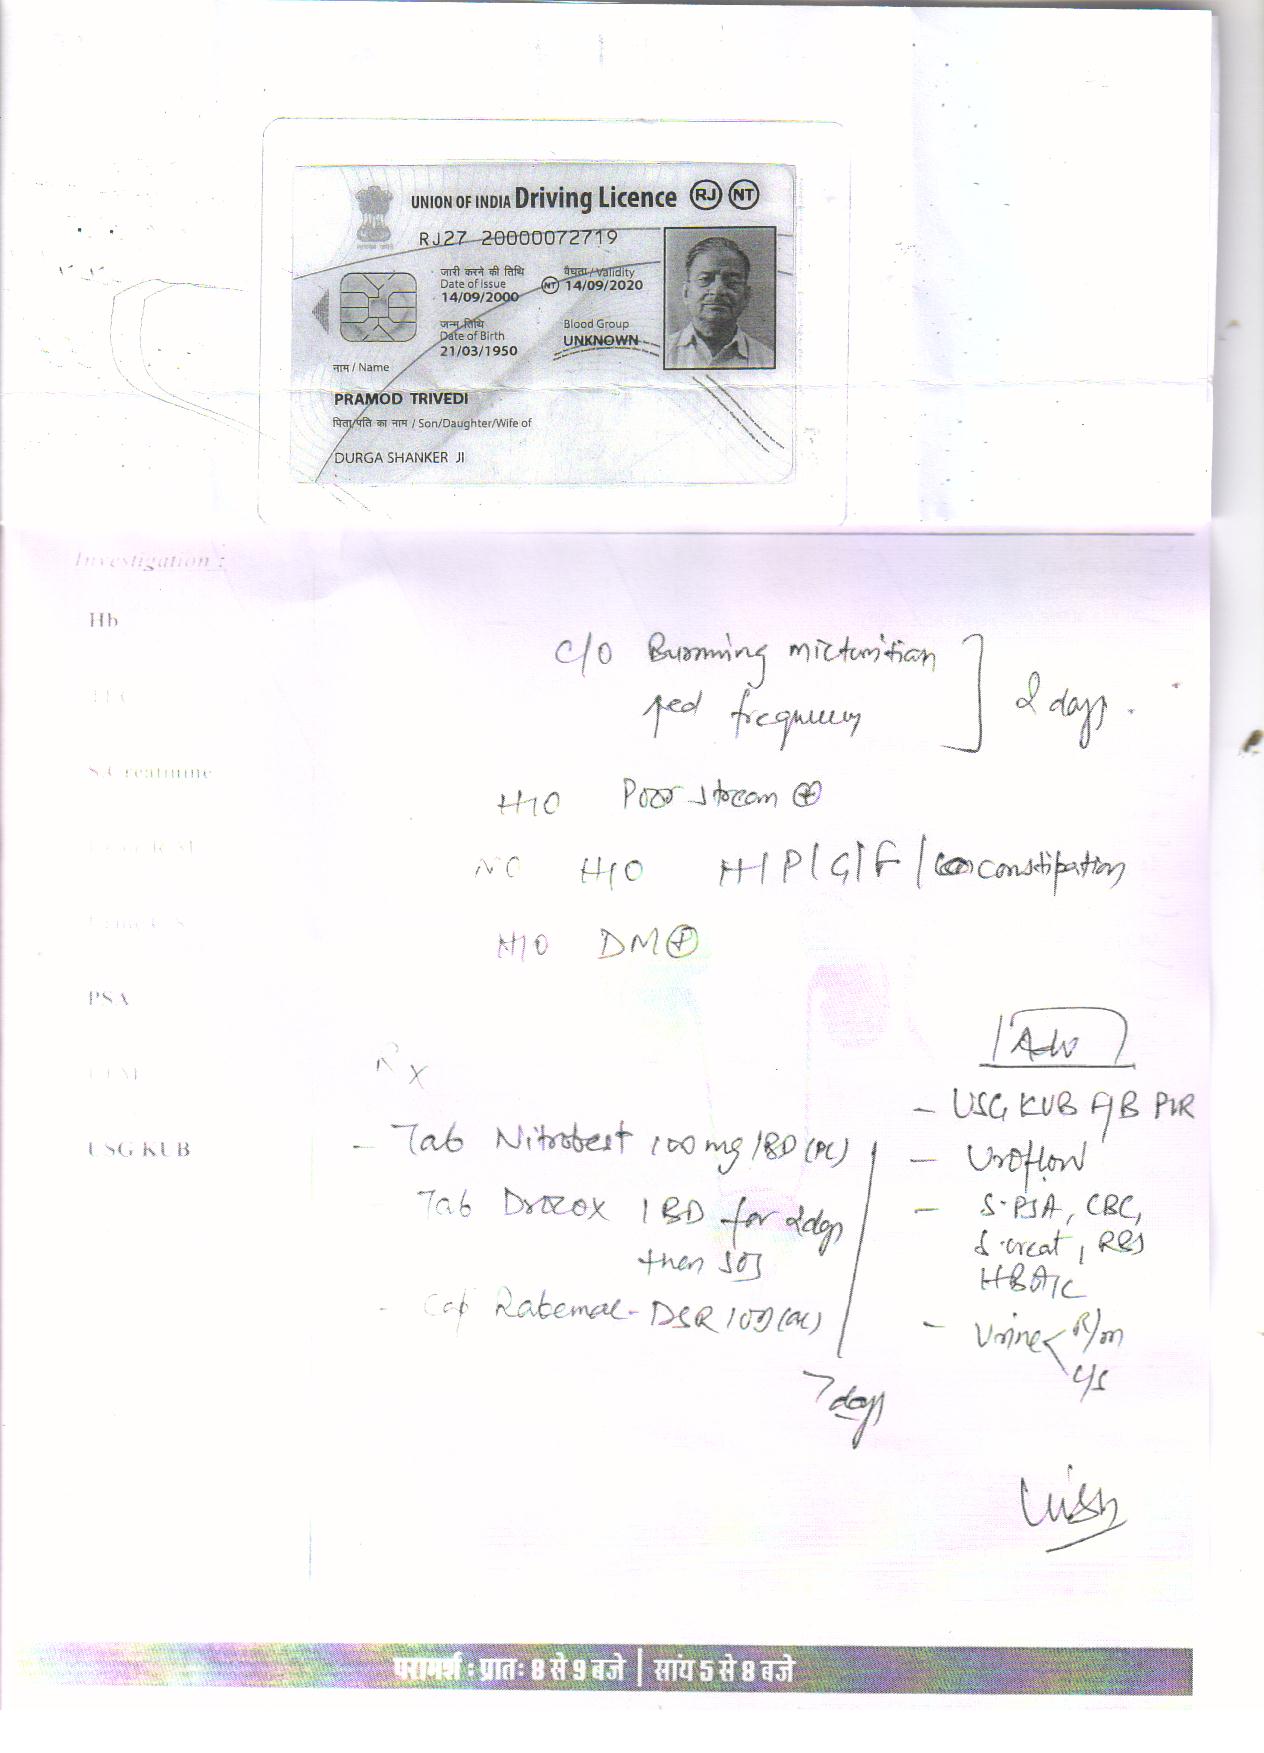 UNION OF INDIA Driving Licence RJ NT
RJ27 20000072719
जारी करने की तिथि
Date of Issue
14/09/2000
वैधता / Validity
NT 14/09/2020
जन्म तिथि
Date of Birth
21/03/1950
Blood Group
UNKNOWN
नाम / Name
PRAMOD TRIVEDI
पिता/पति का नाम / Son/Daughter/Wife of
DURGA SHANKER JI
Investigation :
Hb
S. Creatinine
PSA
USG KUB
C/O Burnning micturition
↑ed frequency ] 2 days.
H/O Poor stream ⊕
NO H/O H/P/G/F / constipation
H/O DM ⊕
Rx
- Tab Nitrobest 100mg 1BD (PC)
Tab Drozox 1 BD for 2 days
then SOS
- Cap Rabemac-DSR 1OD (AC)
7 days
Adv
- USG KUB A/B PVR
- Uroflow
- S-PSA, CBC,
S.creat, RBS
HBA1C
- Urine < R/m
C/S
परामर्श : प्रातः 8 से 9 बजे | सांय 5 से 8 बजे